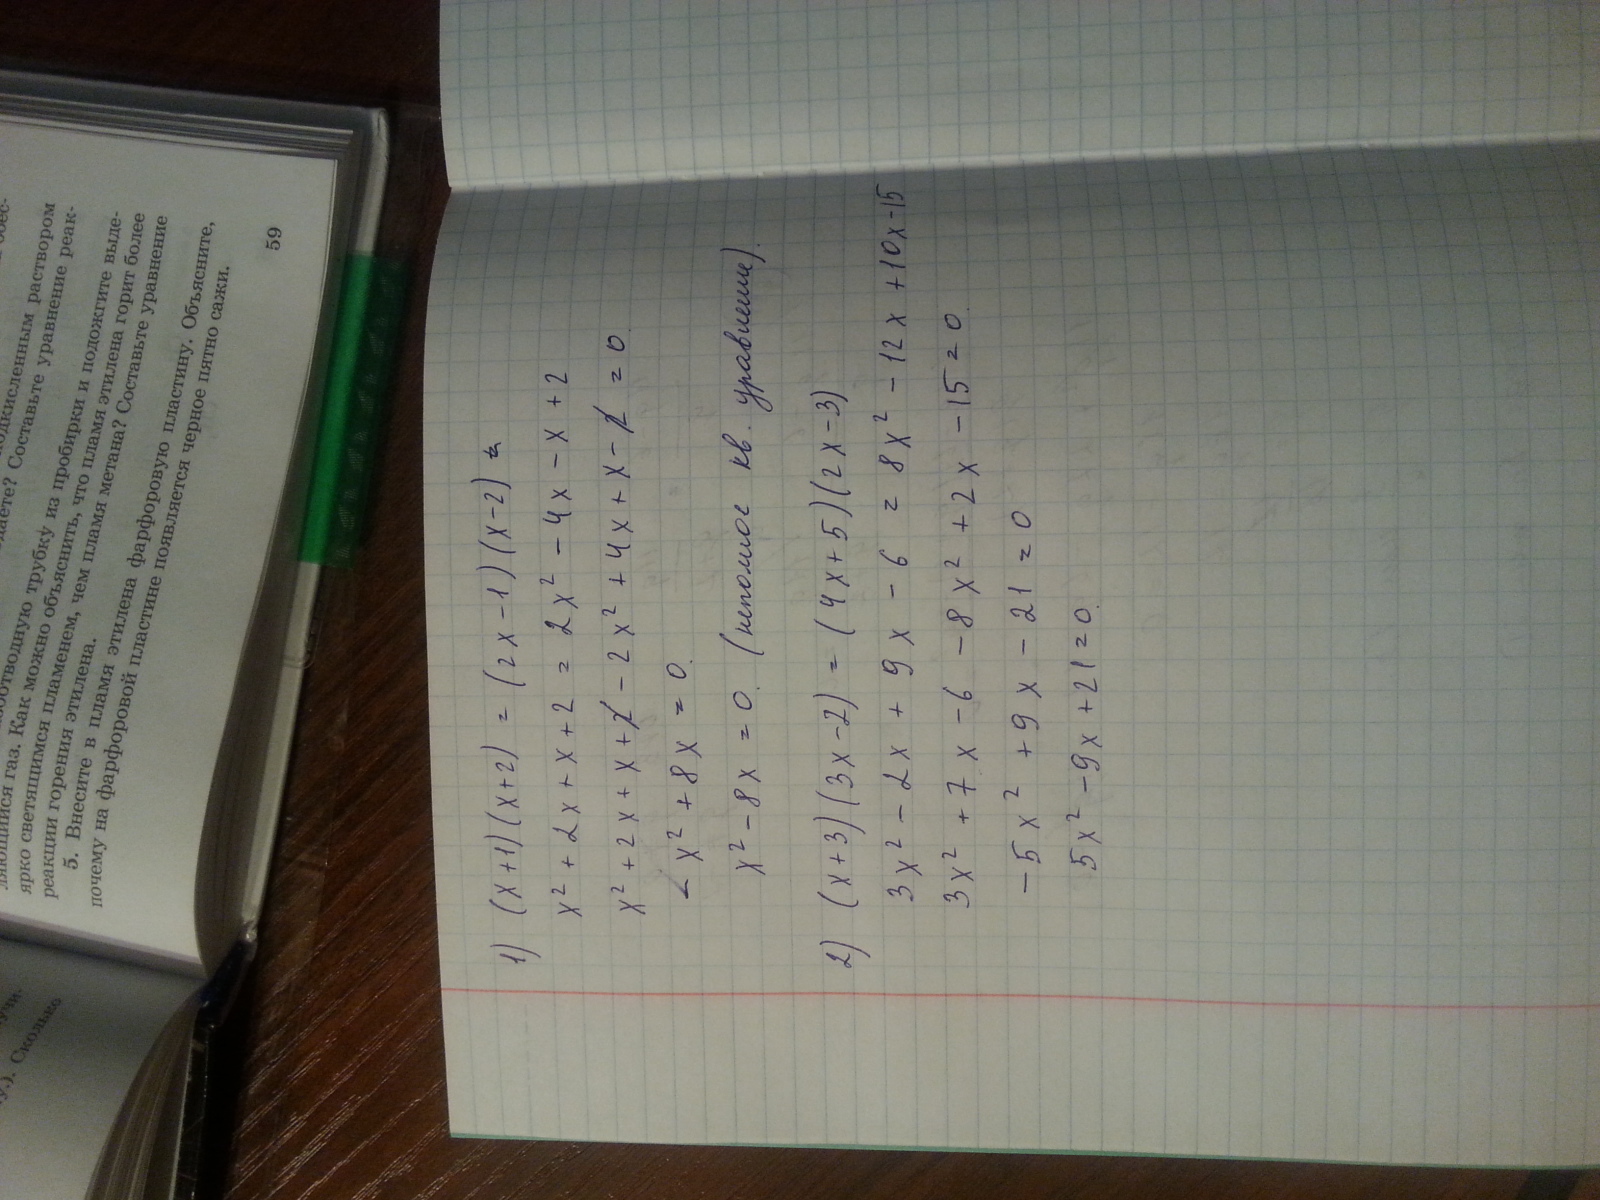 одкисленным раствором
дaeте? Составьте уравнение реак-
ляющийся газ. Как можно объяснить, что пламя этилена горит более
ярко светящимся пламенем, чем пламя метана? Составьте уравнение
реакции горения этилена.
5. Внесите в пламя этилена фарфоровую пластину. Объясните,
почему на фарфоровой пластине появляется черное пятно сажи.
59
Сколько
1) (x+1)(x+2) = (2x-1)(x-2)
x² + 2x + x + 2 = 2x² - 4x - x + 2
x² + 2x + x + 2 - 2x² + 4x + x - 2 = 0
- x² + 8x = 0.
x² - 8x = 0. (неполное кв. уравнение).
2) (x+3)(3x-2) = (4x+5)(2x-3)
3x² - 2x + 9x - 6 = 8x² - 12x + 10x - 15
3x² + 7x - 6 - 8x² + 2x - 15 = 0.
- 5x² + 9x - 21 = 0
5x² - 9x + 21 = 0.